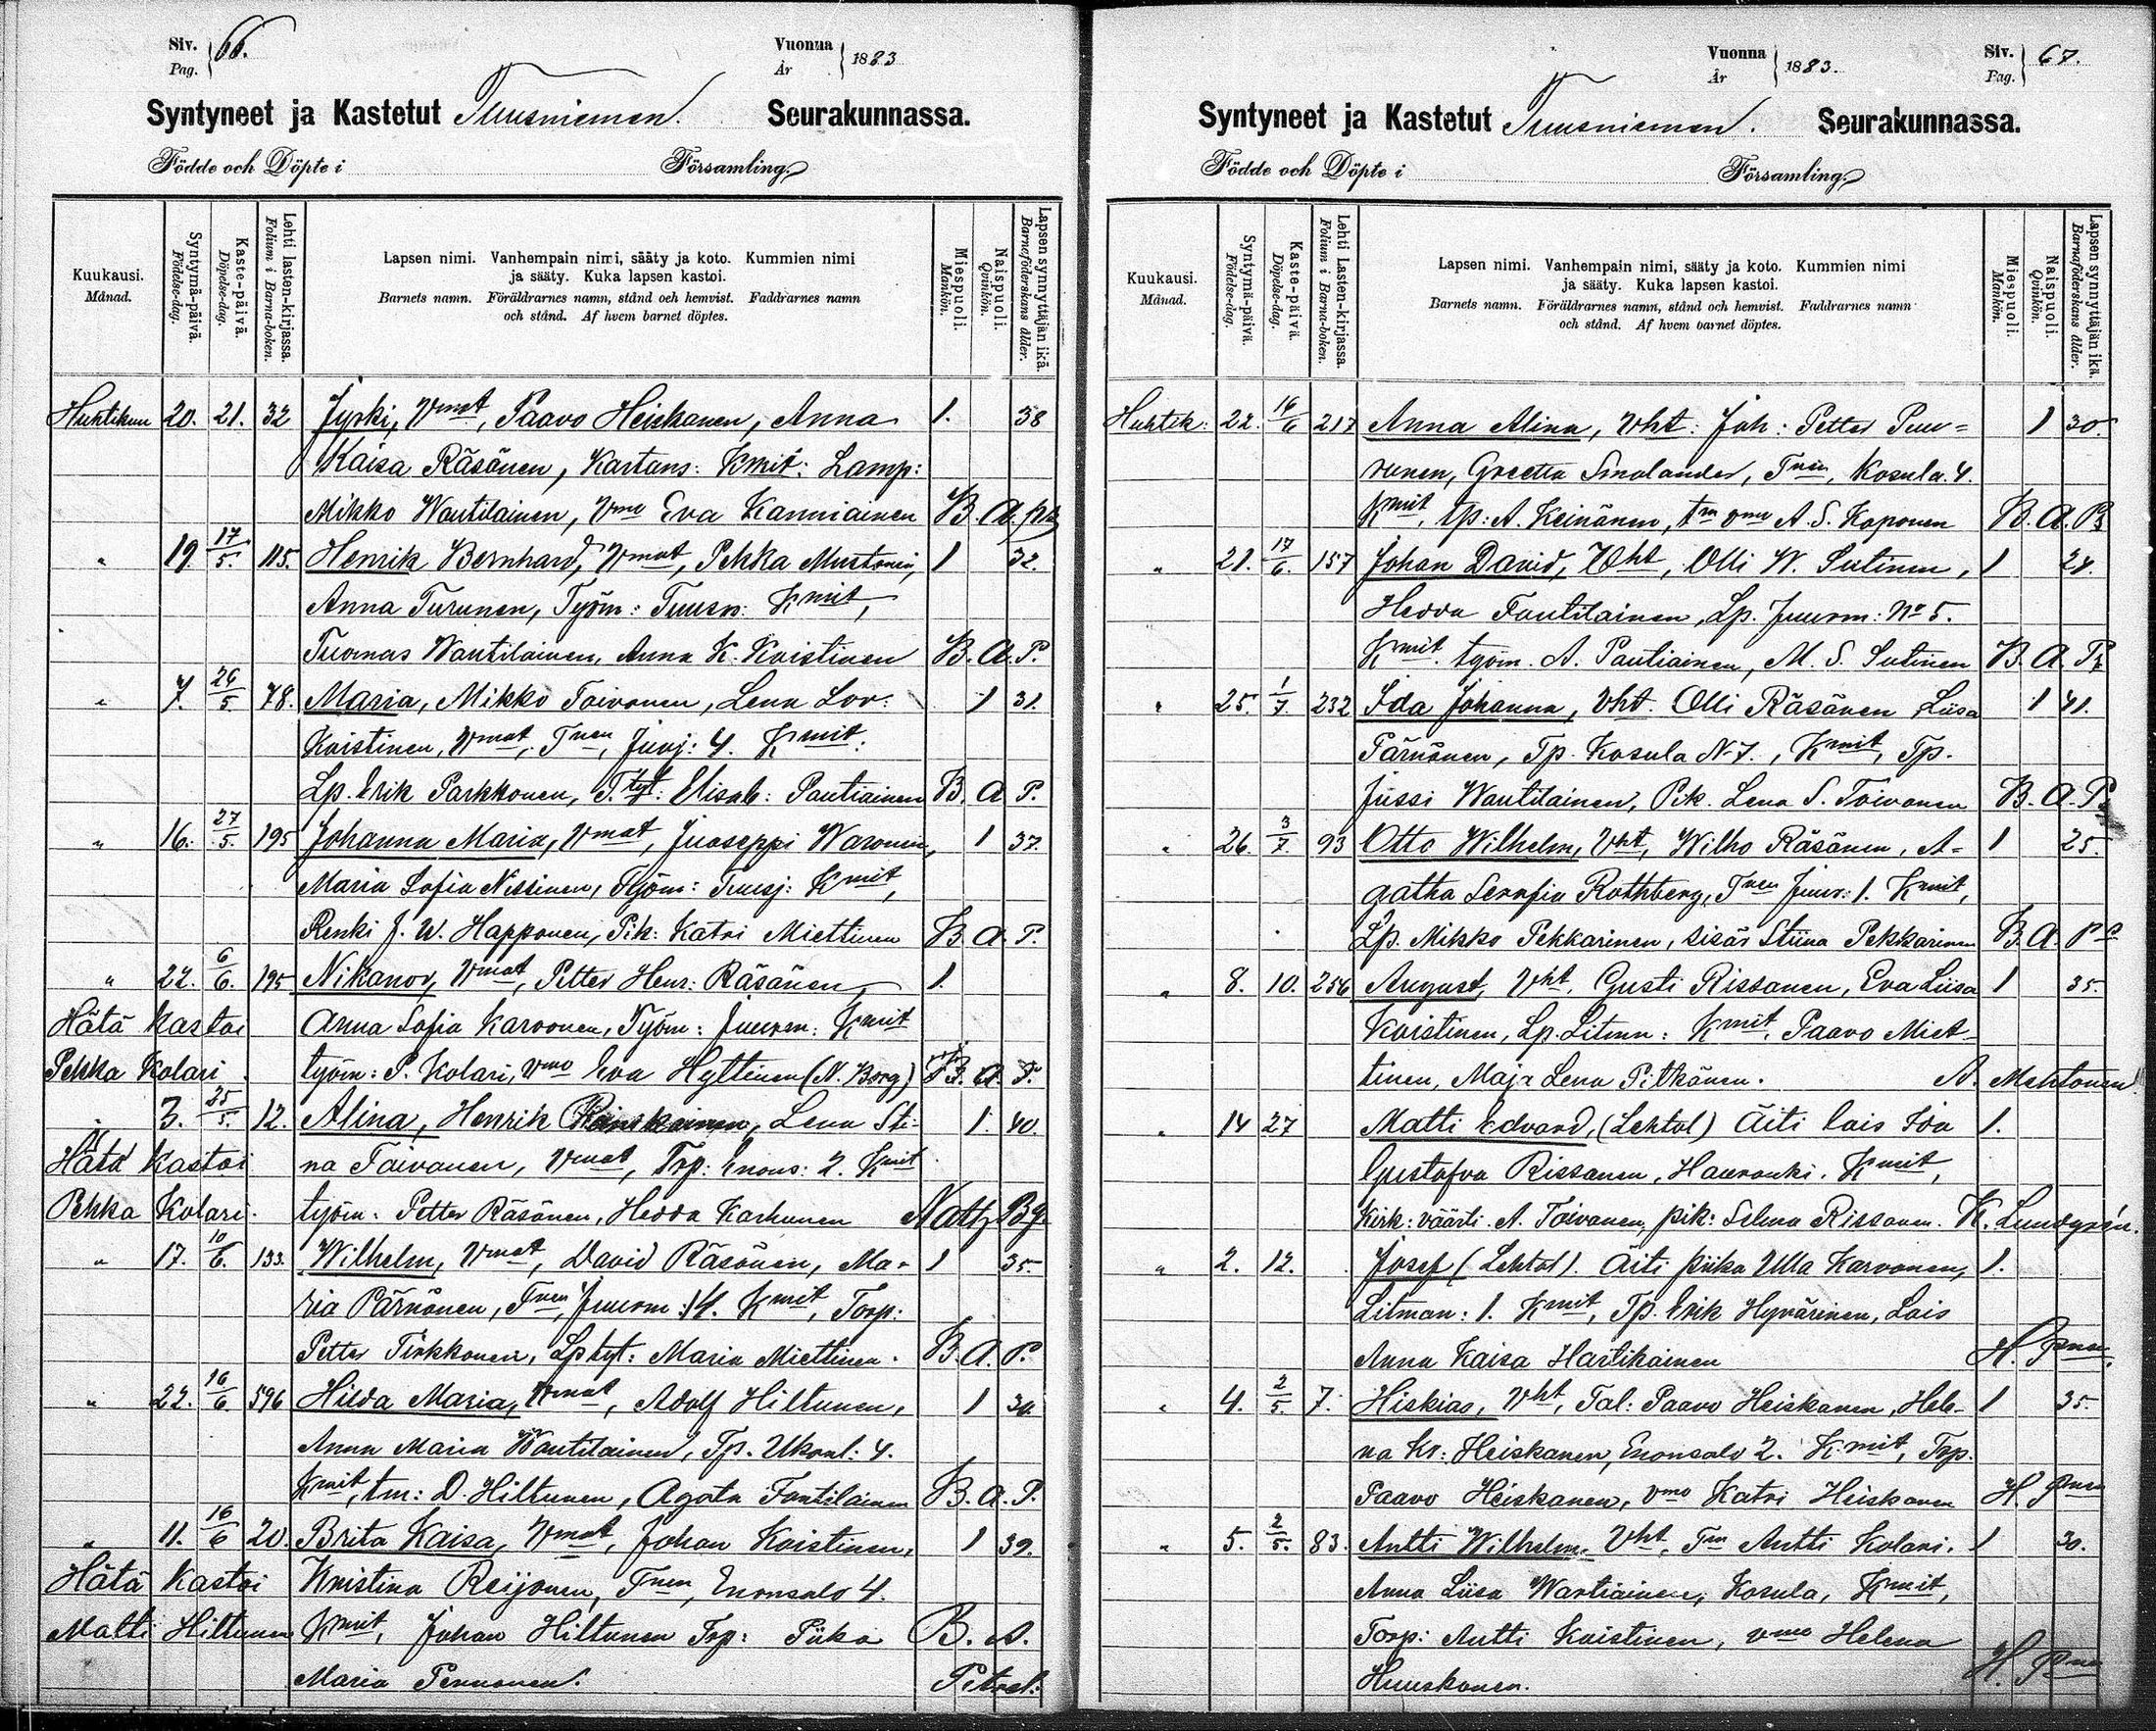 Siv. Pag. 66. Vuonna År 1883
Syntyneet ja Kastetut Tuusniemen. Seurakunnassa.
Födde och Döpte i Församling.
Kuukausi. Månad.
Syntymä-päivä. Födelse-dag.
Kaste-päivä. Döpelse-dag.
Lehti lasten-kirjassa. Folium i Barna-boken.
Lapsen nimi. Vanhempain nimi, sääty ja koto. Kummien nimi
ja sääty. Kuka lapsen kastoi.
Barnets namn. Föräldrarnes namn, stånd och hemvist. Faddrarnes namn
och stånd. Af hvem barnet döptes.
Miespuoli. Mankön.
Naispuoli. Qvinkön.
Lapsen synnyttäjän ikä. Barnaföderskans ålder.
Huhtikuu 20. 21. 32 Jyrki, Vmat, Paavo Heiskanen, Anna 1. 38
Kaisa Räsänen, Kartans: Kmit: Lamp:
Mikko Wantilainen, Vmo Eva Kanniainen B. A.
" 19 17/5. 115. Henrik Bernhard, Vmat, Pekka Mustonin, 1 32.
Anna Turunen, Työm: Tuusn: Kmit,
Tuomas Wantilainen, Anna K. Koistinen B. A. P.
" 7. 26/5. 78. Maria, Mikko Toivonen, Lena Lov: 1 31.
Koistinen, Vmat, Tnen, Juoj: 4. Kmit:
Lp. Erik Parkkonen, T.tyt: Elisab: Pautiainen B. A P.
" 16. 27/5. 195 Johanna Maria, Vmat, Juoseppi Waronin, 1 37.
Maria Sofia Nissinen, Työm: Tuusj: Kmit,
Renki J. W. Happonen, Pik: Katri Miettinen B A. P.
" 22. 6/6. 195 Nikanor, Vmat, Petter Henr: Räsänen, 1.
Hätä kastoi Anna Sofia Karvonen, Työm: Juurm: Kmit
Pekka Kolari työm: P. Kolari, Vmo Eva Hyttinen (N. Borg) B. A. P.
" 3. 25/5. 12. Alina, Henrik Lena Sti- 1. 40.
Hätä kastoi na Taivanen, Vmat, Trp: Enons: 2. Kmit
Pekka Kolari. työm. Petter Räsänen, Hedda Karhunen
" 17. 10/6. 133. Wilhelm, Vmat, David Räsönen, Ma- 1 35.
ria Pärnönen, Tnen, Juurm: 14. Kmit, Torp:
Petter Tirkkonen, Lp tyt: Maria Miettinen. B. A. P.
" 22. 16/6 596 Hilda Maria, Vmat, Adolf Hiltunen, 1 30.
Anna Maria Wantilainen, Tp. Ukonl: 4.
Kmit, tm: D. Hiltunen, Agata Fantilainen B. A. P.
" 11. 16/6 20. Brita Kaisa, Vmat, Johan Koistinen, 1 39.
Hätä kastoi Kristina Reijonen, Tnen, Enonsalo 4.
Matti Hiltunen Kmit, Johan Hiltunen Trp: Piika B. A.
Maria Pennonen.
Vuonna År 1883. Siv. Pag. 67.
Syntyneet ja Kastetut Tuusniemen. Seurakunnassa.
Födde och Döpte i Församling.
Kuukausi. Månad.
Syntymä-päivä. Födelse-dag.
Kaste-päivä. Döpelse-dag.
Lehti Lasten-kirjassa. Folium i Barna-boken.
Lapsen nimi. Vanhempain nimi, sääty ja koto. Kummien nimi
ja sääty. Kuka lapsen kastoi.
Barnets namn. Föräldrarnes namn, stånd och hemvist. Faddrarnes namn
och stånd. Af hvem barnet döptes.
Miespuoli. Mankön.
Naispuoli. Qvinkön.
Lapsen synnyttäjän ikä. Barnaföderskans ålder.
Huhtik: 22. 16/6 217 Anna Alina, Vht: Joh: Petter Puu= 1 30.
runen, Greetta Smolander, Tnin, Kosula. 4.
Kmit, tp: A. Keinänen, tm vmo A. S. Koponen B. A. P
" 21. 17/6. 157 Johan David, Vht, Olli W. Sutinen, 1 24.
Hedda Fantilainen, Lp. Juurm: No 5.
Kmit. työm. A. Pautiainen, M. S. Sutinen B. A P
" 25. 1/7. 232 Ida Johanna, Vht. Olli Räsänen Liisa 1 41.
Pärnänen, Tp. Kosula N-7., Kmit, Tp.
Jussi Wantilainen, Pik. Lena S. Toivanen B. A. P
" 26. 3/7. 93 Otto Wilhelm, Vht, Wilho Räsänen, A- 1 25.
gatha Serafia Rothberg, Tnen Juur: 1. Kmit,
Lp. Mikko Pekkarinen, sisär Stiina Pekkarinen B. A. P
" 8. 10. 256 August, Vht, Gusti Rissanen, Eva Liisa 1 35.
Koistinen, Lp. Litmn: Kmit, Paavo Miet-
tinen, Maja Lena Pitkänen. A. Mehtonen
" 14 27 Matti Edvard, (Lehtol) Äiti lais Ida 1.
Gustafva Rissanen, Hauronki. Kmit,
Kirk: väärti A. Toivanen, pik: Selma Rissanen. K. Lundgrén.
" 2. 12. Josef (Lehtol). Äiti piika Ulla Karvonen, 1.
Litman: 1. Kmit, Tp. Erik Hyvärinen, Lais
Anna Kaisa Hartikainen
" 4. 2/5. 7. Hiskias, Vht, Tal: Paavo Heiskanen, Hele- 1 35.
na Kr: Heiskanen, Enonsalo 2. Kmit, Trp.
Paavo Heiskanen, vmo Katri Heiskanen
" 5. 2/5. 83. Antti Wilhelm. Vht, Tm Antti Kolari. 1 30.
Anna Liisa Wartiainen, Kosula, Kmit,
Torp: Antti Koistinen, vmo Helena
Huuskonen.